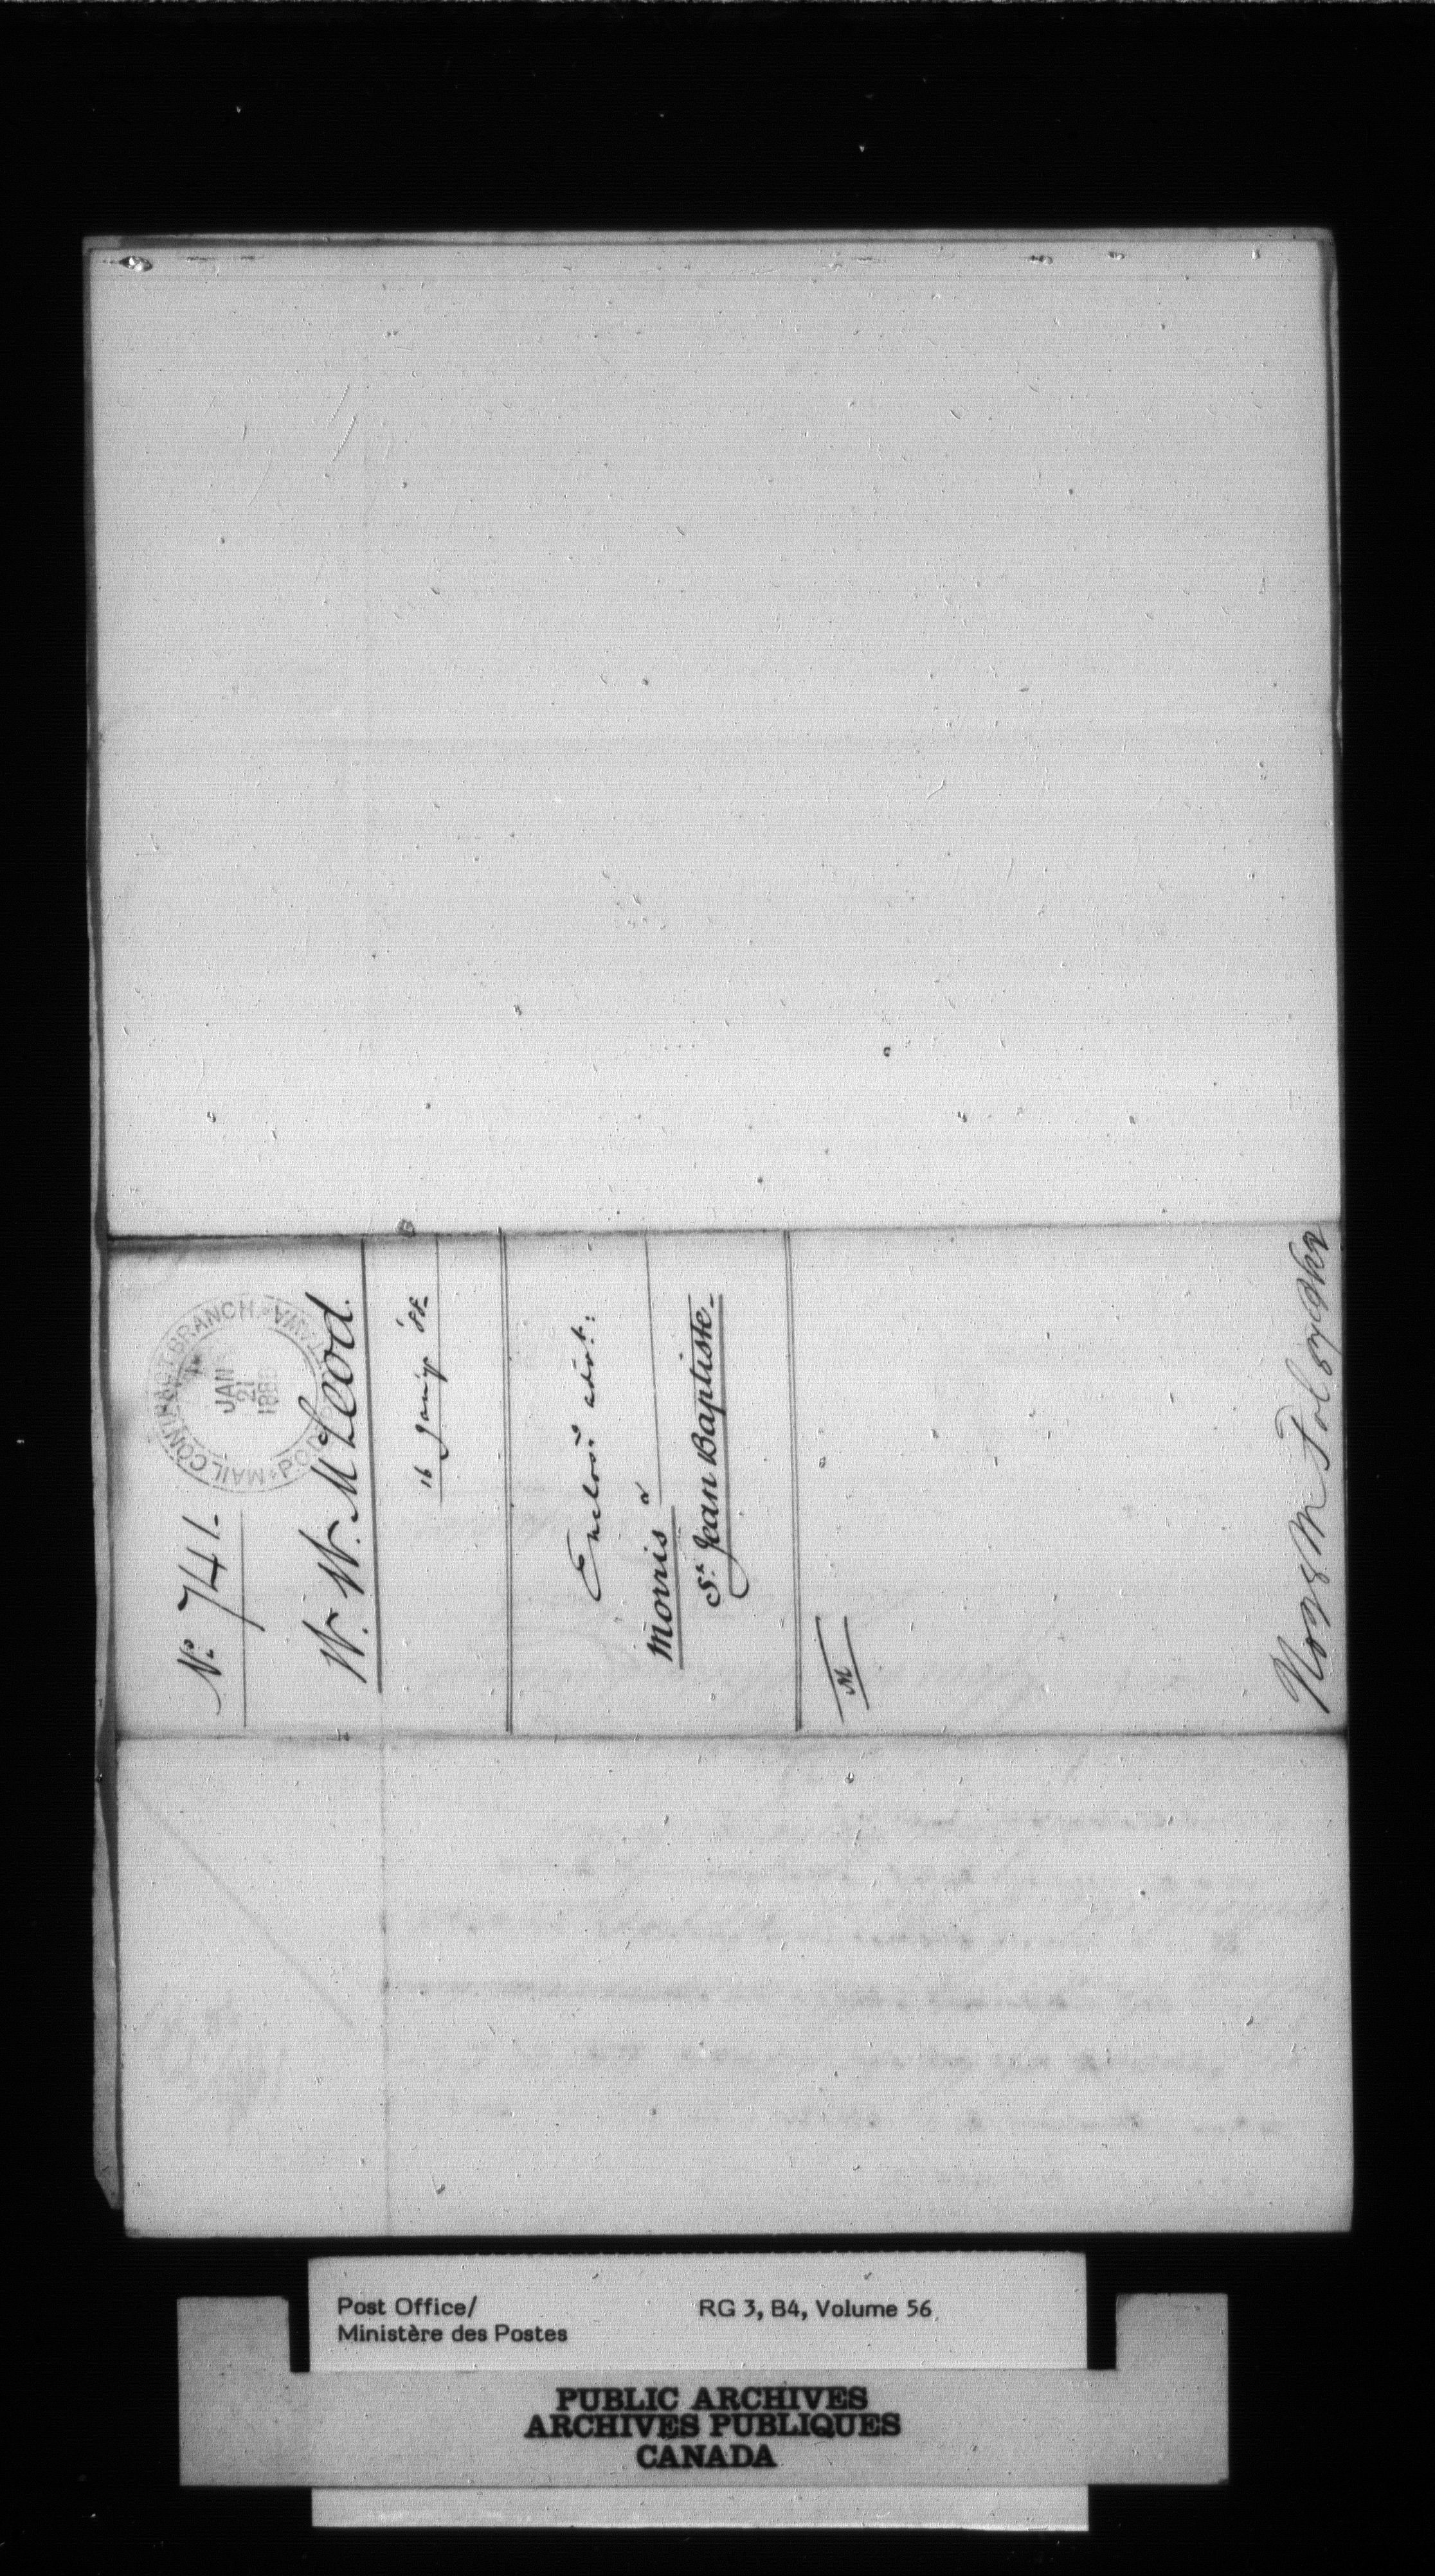 No. 741-
MAIL CONTRACT BRANCH.
P.O.D. OTTAWA
JAN
21
188
W. W. McLeod.
16 Jany '88-
Enclosd advt:
Morris &
St. Jean Baptiste-
M
Post Office/
Ministère des Postes
RG 3, B4, Volume 56
PUBLIC ARCHIVES
ARCHIVES PUBLIQUES
CANADA